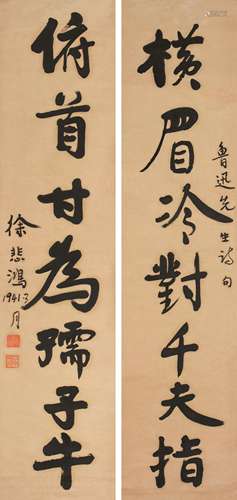 橫眉冷對千夫指
魯迅先生詩句
俯首甘為孺子牛
徐悲鴻
1941.3月